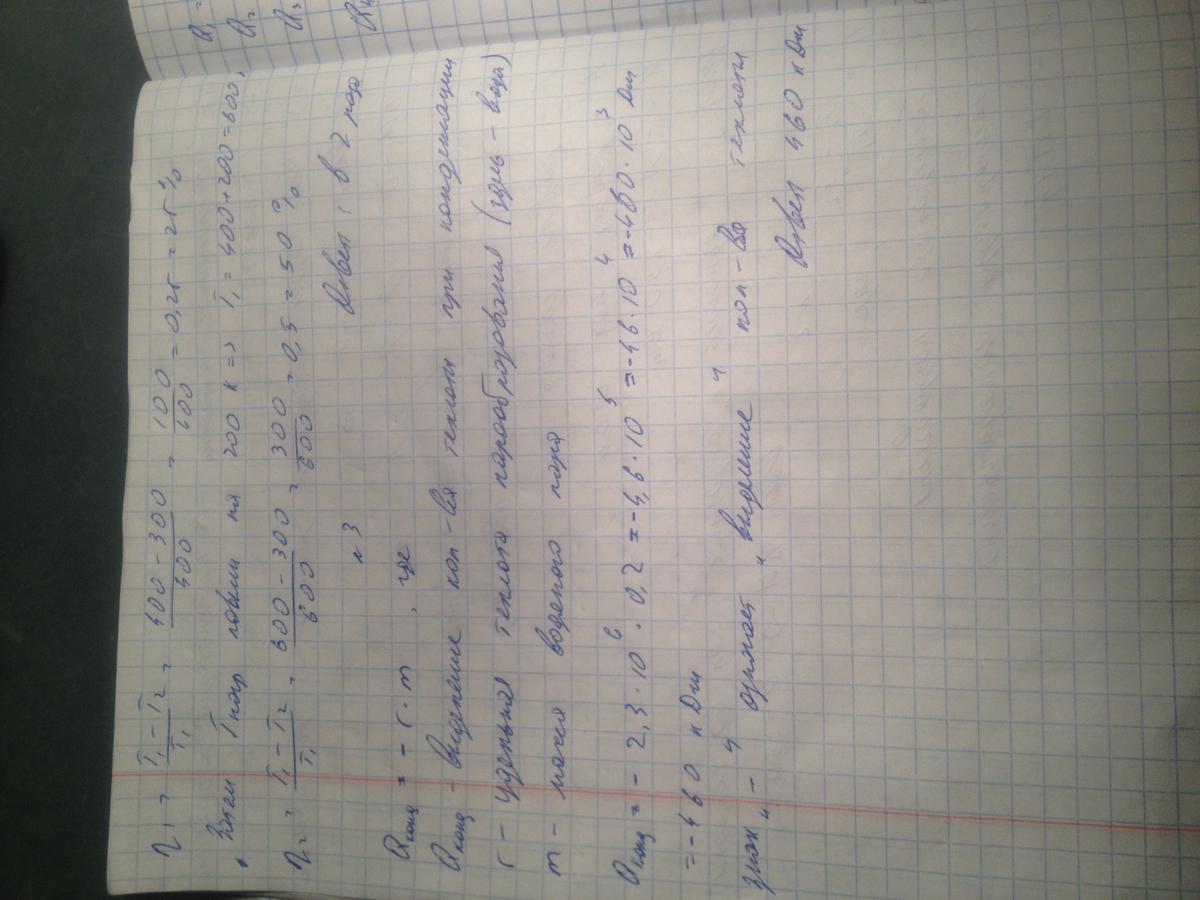 Q₁ =
Q₂
Q₃
η₁ = (T₁ - T₂)/T₁ = (400 - 300)/400 = 100/400 = 0,25 = 25%
Затем Tнагр повыш на 200 К => T₁ = 400 + 200 = 600,
η₂ = (T₁ - T₂)/T₁ = (600 - 300)/600 = 300/600 = 0,5 = 50%
Ответ: в 2 раза
№3
Qконд = - r · m , где
Qконд - выделение кол-ва теплоты при конденсации
r - удельная теплота парообразования (здесь - вода)
m - масса водяного пара
Qконд = - 2,3 · 10⁶ · 0,2 = -4,6 · 10⁵ = -46 · 10⁴ = -460 · 10³ Дж
= -460 кДж
знак „ - " означает „ выделение " кол-ва теплоты
Ответ 460 кДж